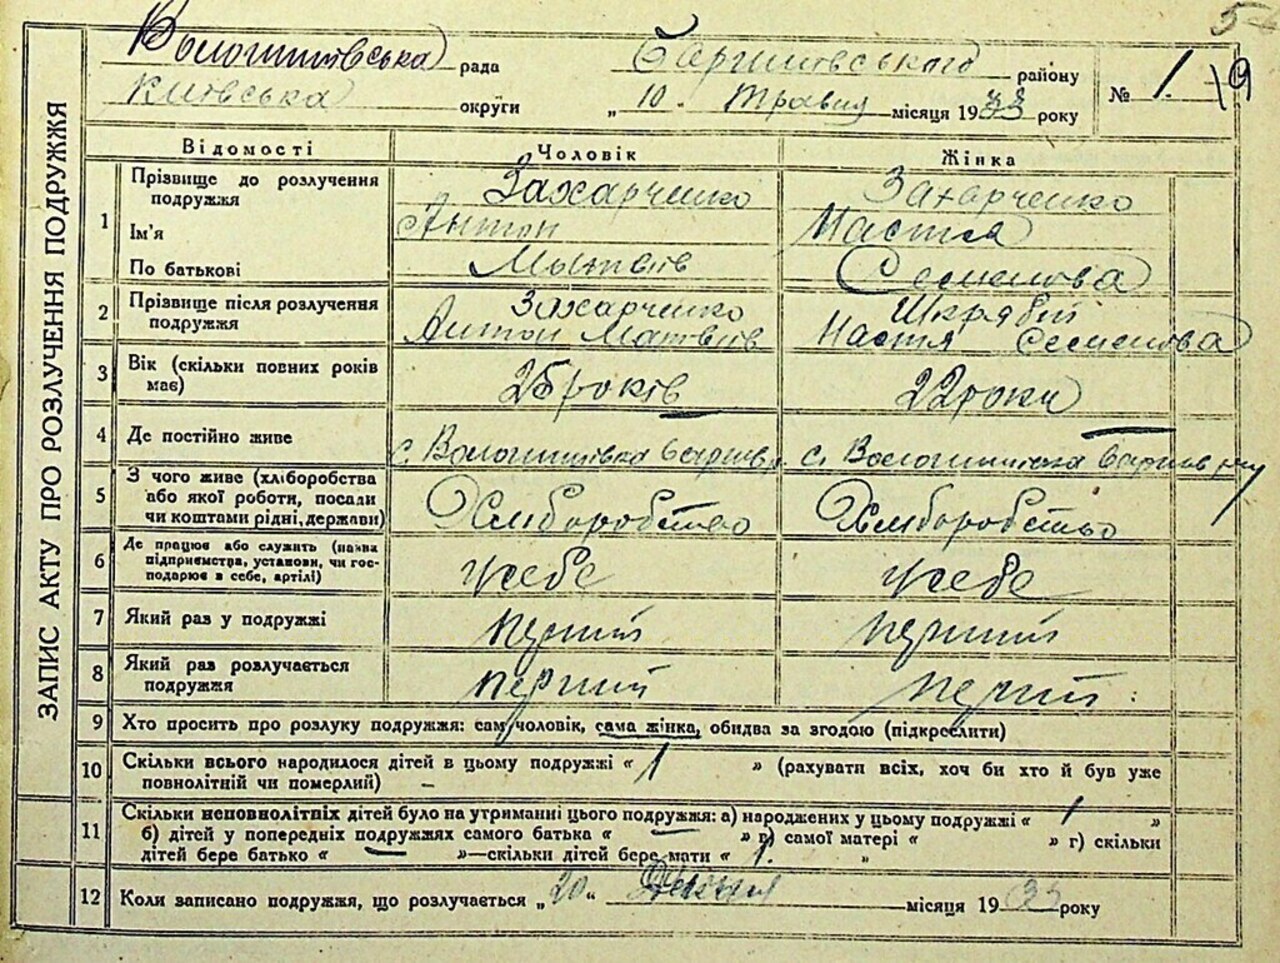 ЗАПИС АКТУ ПРО РОЗЛУЧЕННЯ ПОДРУЖЖЯ
рада
району
Київська округи „10" Травня місяця 1933 року
№ 1
Відомості Чоловік Жінка
1 Прізвище до розлучення подружжя Захарченко Захарченко
Ім'я Антон Настя
По батькові Матвіїв Семенова
2 Прізвище після розлучення подружжя Захарченко Антон Матвіїв Шкрябій Настя Семенова
3 Вік (скільки повних років має) 25 років 22 роки
4 Де постійно живе с. с.
5 З чого живе (хліборобства або якої роботи, посади чи коштами рідні, держави) Хліборобство Хліборобство
6 Де працює або служить (назва підприємства, установи, чи господарює в себе, артілі) у себе у себе
7 Який раз у подружжі перший перший
8 Який раз розлучається подружжя перший перший
9 Хто просить про розлуку подружжя: сам чоловік, сама жінка, обидва за згодою (підкреслити)
10 Скільки всього народилося дітей в цьому подружжі « 1 » (рахувати всіх, хоч би хто й був уже
повнолітній чи померлий) –
11 Скільки неповнолітніх дітей було на утриманні цього подружжя: а) народжених у цьому подружжі « 1 »
б) дітей у попередніх подружжях самого батька « — » в) самої матері « » г) скільки
дітей бере батько « — »—скільки дітей бере мати « 1. »
12 Коли записано подружжя, що розлучається „20" місяця 19 року